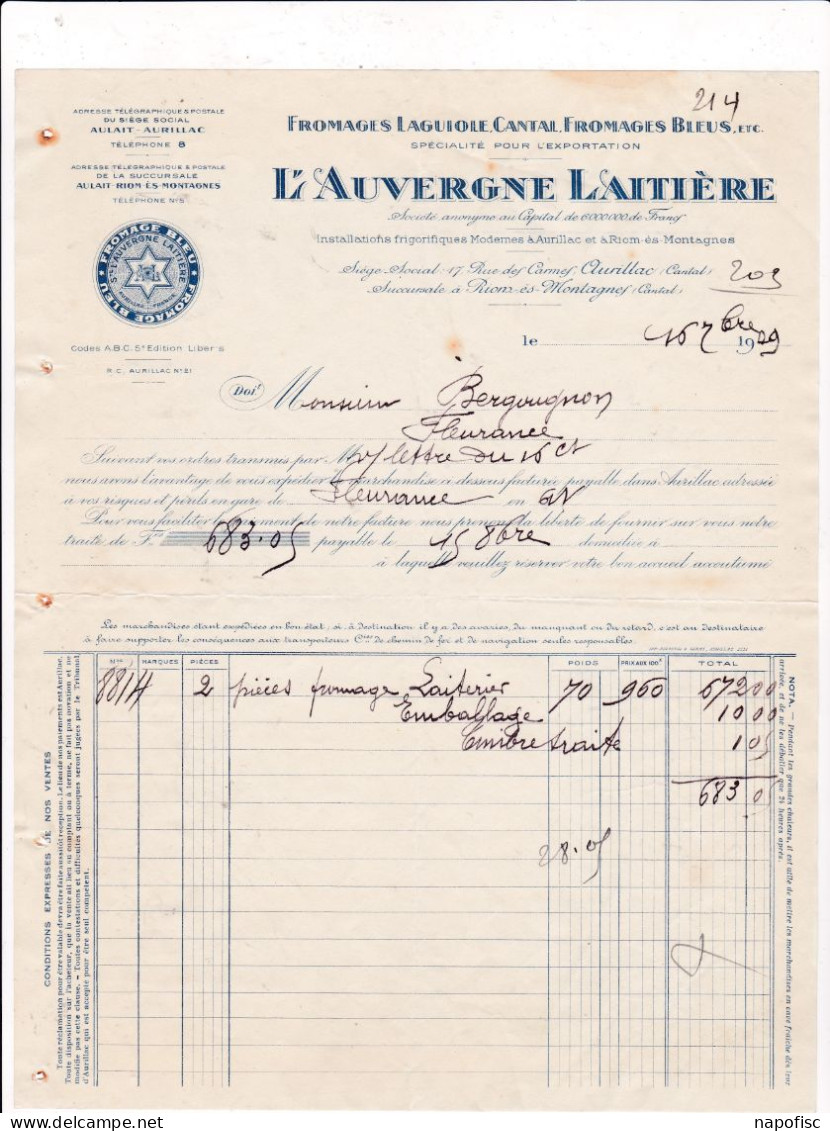 214
ADRESSE TÉLÉGRAPHIQUE & POSTALE
DU SIÈGE SOCIAL
AULAIT-AURILLAC
TÉLÉPHONE 8
ADRESSE TÉLÉGRAPHIQUE & POSTALE
DE LA SUCCURSALE
AULAIT-RIOM-ÈS-MONTAGNES
TÉLÉPHONE N°5
FROMAGE BLEU
STÉ L'AUVERGNE LAITIÈRE
FROMAGE BLEU
Codes A.B.C. 5e Edition Liber's
R.C. AURILLAC N°21
FROMAGES LAGUIOLE, CANTAL, FROMAGES BLEUS, ETC.
SPÉCIALITÉ POUR L'EXPORTATION
L'AUVERGNE LAITIÈRE
Société anonyme au Capital de 6.000.000 de Francs
Installations frigorifiques Modernes à Aurillac et à Riom-ès-Montagnes
Siège Social: 17 Rue des Carmes, Aurillac (Cantal)
Succursale à Riom-ès-Montagnes (Cantal)
203
le 16 7bre 1929
Doit Monsieur Bergougnon
Fleurance
Suivant vos ordres transmis par M v/ lettre du 15 ct
nous avons l'avantage de vous expédier la marchandise ci dessous facturée payable dans Aurillac adressée
à vos risques et périls en gare de Fleurance en GV
Pour vous faciliter le payement de notre facture nous prenons la liberté de fournir sur vous notre
traite de Frs 683.05 payable le 15 8bre domiciliée à
à laquelle veuillez réserver votre bon accueil accoutumé
Les marchandises étant expédiées en bon état, si à destination il y a des avaries, du manquant ou du retard, c'est au Destinataire
à faire supporter les conséquences aux transporteurs Cies de chemin de fer et de navigation seules responsables.
Nos MARQUES PIÈCES POIDS PRIX AUX 100K TOTAL
8814 2 pièces fromage Laitier 70 960 672 00
Emballage 10 00
Timbre traite 1 05
683 05
28.05
CONDITIONS EXPRESSES DE NOS VENTES
Toute réclamation pour être valable devra être faite aussitôt réception. Le lieu de nos paiements est Aurillac.
Toute disposition sur l'acheteur, que la vente ait lieu au comptant ou à terme, ne fait pas novation et ne
modifie pas cette clause. - Toutes contestations et difficultés quelconques seront jugées par le Tribunal
d'Aurillac qui est accepté pour être seul compétent.
NOTA. — Pendant les grandes chaleurs, il est utile de mettre les marchandises en cave fraîche dès leur
arrivée, et de ne les déballer que 24 heures après.
napofisc